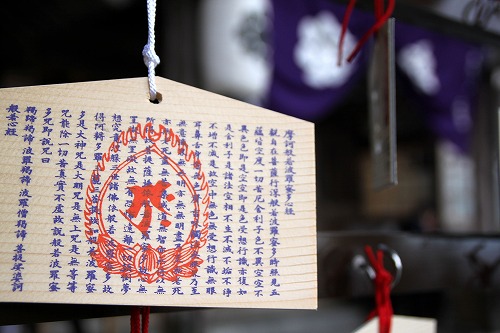 摩訶般若波羅蜜多心経
観自在菩薩行深般若波羅蜜多時照見五
蘊皆空度一切苦厄舎利子色不異空空不
異色色即是空空即是色受想行識亦復如
是舎利子是諸法空相不生不滅不垢不浄
不増不減是故空中無色無受想行識無眼
耳鼻舌身意無色声香味触法無眼界乃至
無意識界無無明亦無無明尽乃至無老死
亦無老死尽無苦集滅道無智亦無得以無
所得故菩提薩埵依般若波羅蜜多故心無
罣礙無罣礙故無有恐怖遠離一切顛倒夢
想究竟涅槃三世諸仏依般若波羅蜜多故
得阿耨多羅三藐三菩提故知般若波羅蜜
多是大神呪是大明呪是無上呪是無等等
呪能除一切苦真實不虚故説般若波羅蜜
多呪即説呪曰
羯諦羯諦 波羅羯諦 波羅僧羯諦 菩提娑婆訶
般若心経